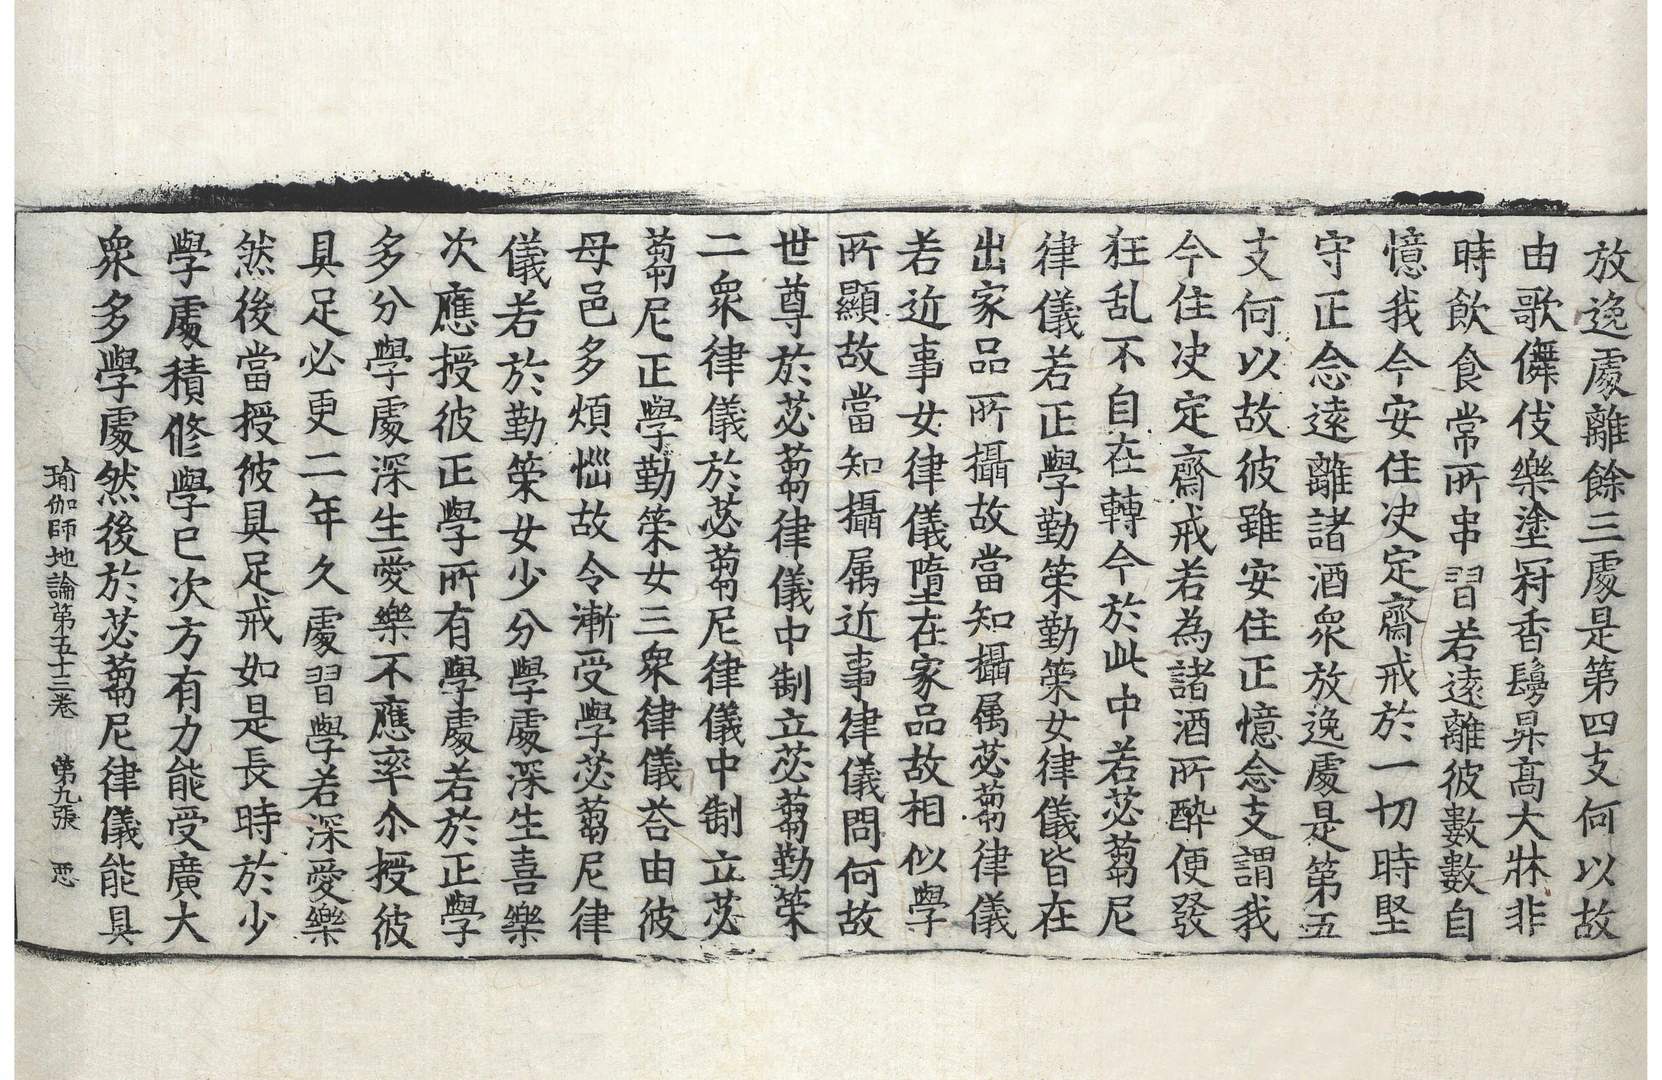 放逸處離餘三處是第四支何以故
由歌儛伎樂塗冠香鬘昇高大牀非
時飲食常所串習若遠離彼數數自
憶我今安住決定齋戒於一切時堅
守正念遠離諸酒衆放逸處是第五
支何以故彼雖安住正憶念支謂我
今住决定齋戒若為諸酒所醉便發
狂乱不自在轉今於此中若苾蒭尼
律儀若正學勤策勤策女律儀皆在
出家品所攝故當知攝属苾蒭律儀
若近事女律儀墮在家品故相似學
所顯故當知攝属近事律儀問何故
世尊於苾蒭律儀中制立苾蒭勤策
二衆律儀於苾蒭尼律儀中制立苾
蒭尼正學勤策女三衆律儀荅由彼
母邑多煩惱故令漸受學苾蒭尼律
儀若於勤策女少分學處深生喜樂
次應授彼正學所有學處若於正學
多分學處深生愛樂不應率尒授彼
具足必更二年久處習學若深愛樂
然後當授彼具足戒如是長時於少
學處積修學已次方有力能受廣大
衆多學處然後於苾蒭尼律儀能具
瑜伽師地論第五十三卷 第九張 惡